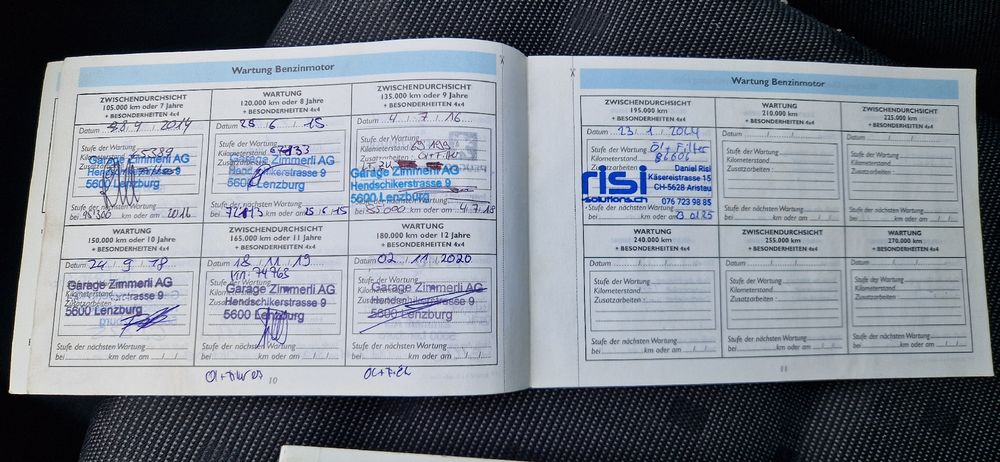 Wartung Benzinmotor
ZWISCHENDURCHSICHT
105.000 km oder 7 Jahre
+ BESONDERHEITEN 4x4
Datum 28.9.2014
Stufe der Wartung
Garage Zimmerli AG
Hendschikerstrasse 9
5600 Lenzburg
Stufe der nächsten Wartung
bei km oder am 2016
WARTUNG
120.000 km oder 8 Jahre
+ BESONDERHEITEN 4x4
Datum 25.6.15
Stufe der Wartung
Kilometerstand
Garage Zimmerli AG
Hendschikerstrasse 9
5600 Lenzburg
Stufe der nächsten Wartung
bei km oder am
ZWISCHENDURCHSICHT
135.000 km oder 9 Jahre
+ BESONDERHEITEN 4x4
Datum 4.7.16
Stufe der Wartung
Kilometerstand
Zusatzarbeiten: Öl + Filter
Garage Zimmerli AG
Hendschikerstrasse 9
5600 Lenzburg
bei km oder am 4.7.18
WARTUNG
150.000 km oder 10 Jahre
+ BESONDERHEITEN 4x4
Datum 24.9.18
Garage Zimmerli AG
Kilometerstand
Hendschikerstrasse 9
5600 Lenzburg
Stufe der nächsten Wartung
bei km oder am
ZWISCHENDURCHSICHT
165.000 km oder 11 Jahre
+ BESONDERHEITEN 4x4
Datum 18.11.19
Garage Zimmerli AG
Hendschikerstrasse 9
5600 Lenzburg
Stufe der nächsten Wartung
bei km oder am
WARTUNG
180.000 km oder 12 Jahre
+ BESONDERHEITEN 4x4
Datum 02.11.2020
Stufe der Wartung
Garage Zimmerli AG
Hendschikerstrasse 9
5600 Lenzburg
Stufe der nächsten Wartung
bei km oder am
10
Wartung Benzinmotor
ZWISCHENDURCHSICHT
195.000 km
+ BESONDERHEITEN 4x4
Datum 23.1.2024
Stufe der Wartung Öl + Filter
Kilometerstand 86606
Zusatzarbeiten
Daniel Risi
risi
Käsereistrasse 15
solutions.ch
CH-5628 Aristau
076 723 98 85
Stufe der nächsten Wartung
bei km oder am
WARTUNG
210.000 km
+ BESONDERHEITEN 4x4
Datum
Stufe der Wartung
Kilometerstand
Zusatzarbeiten :
Stufe der nächsten Wartung
bei km oder am
ZWISCHENDURCHSICHT
225.000 km
+ BESONDERHEITEN 4x4
Datum
Stufe der Wartung
Kilometerstand
Zusatzarbeiten :
Stufe der nächsten Wartung
bei km oder am
WARTUNG
240.000 km
+ BESONDERHEITEN 4x4
Datum
Stufe der Wartung
Kilometerstand
Zusatzarbeiten :
Stufe der nächsten Wartung
bei km oder am
ZWISCHENDURCHSICHT
255.000 km
+ BESONDERHEITEN 4x4
Datum
Stufe der Wartung
Kilometerstand
Zusatzarbeiten :
Stufe der nächsten Wartung
bei km oder am
WARTUNG
270.000 km
+ BESONDERHEITEN 4x4
Datum
Stufe der Wartung
Kilometerstand
Zusatzarbeiten :
Stufe der nächsten Wartung
bei km oder am
11